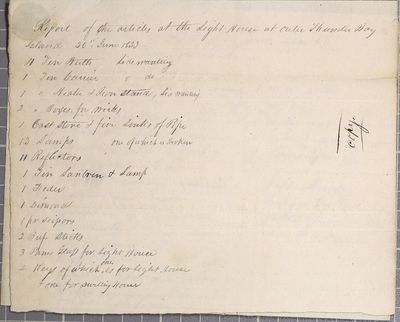 Report of the articles at the Light House at outer Thunder Bay
Island 30th June 1833
11 Tin Butts lids wanting
1 Tin Carrier " do
1 " Heater & Iron stand, lid wanting
2 " Boxes for wicks
1 Cast Stove & five links of Pipe
13 Lamps one of which is broken
11 Reflectors
1 Tin Lantren & Lamp
1 Feder
1 Dimond
1 pr Scissors
2 Sticks
3 Panes Glass for Light House
2 Keys of which one is for Light House
& one for dwelling House
copy.